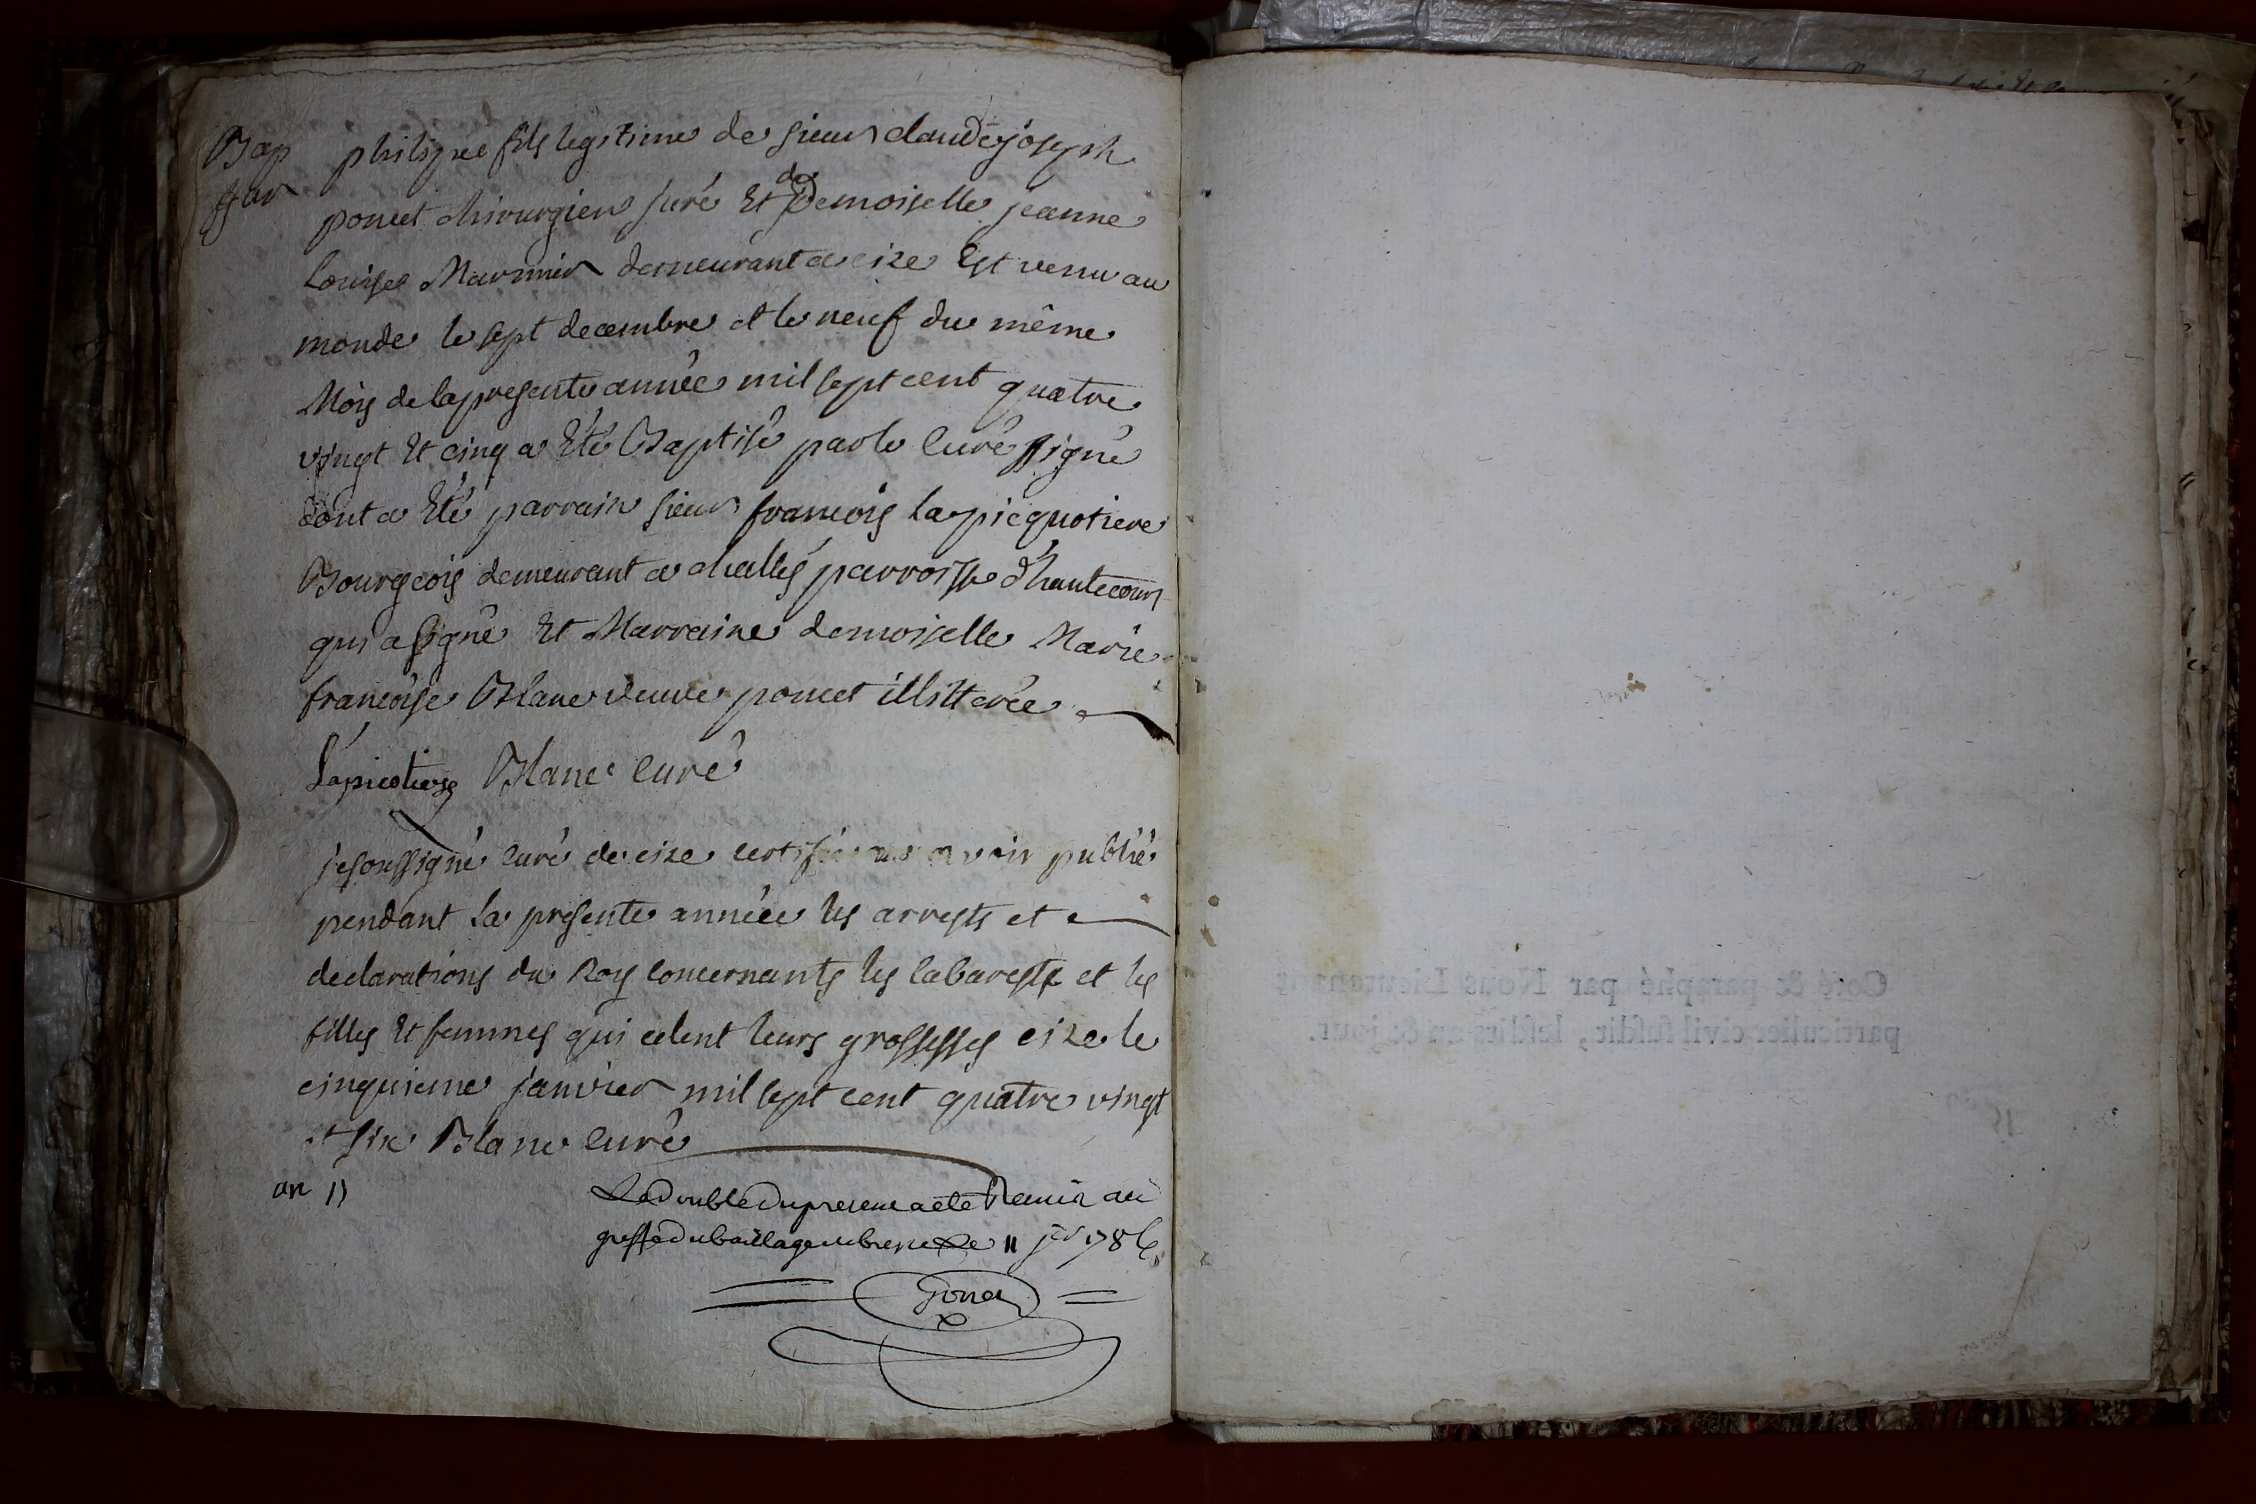 Bap
philippe fils legitime de sieur claude joseph
poncet chirurgien juré Et de Demoiselle jeanne
Louise Marmier demeurant a cize Est venu au
monde le sept decembre et le neuf du même
Mois de la presente année mil sept cent quatre
vingt Et cinq a Eté Baptisé par le curé ssigné
dont a Eté parrain sieur francois la picquotiere
Bourgeois demeurant a challes parroisse d'hautecour
qui a signé Et Marraine demoiselle Marie
francoise Blanc veuve poncet illitterée
Lapicotiere Blanc curé
je soussigné curé de cize certifie avoir publié
pendant La presente année les arrests et
declarations du Roy concernants les cabarests et les
filles Et femmes qui celent leurs grossesses cize le
cinquieme janvier mil sept cent quatre vingt
et six Blanc curé
an 11
Le double du present a eté Remis au
greffe du bailliage de bresse le 11 jer 1786
Coté & paraphé par Nous Lieutenant
particulier civil susdit, lesdits an & jour.